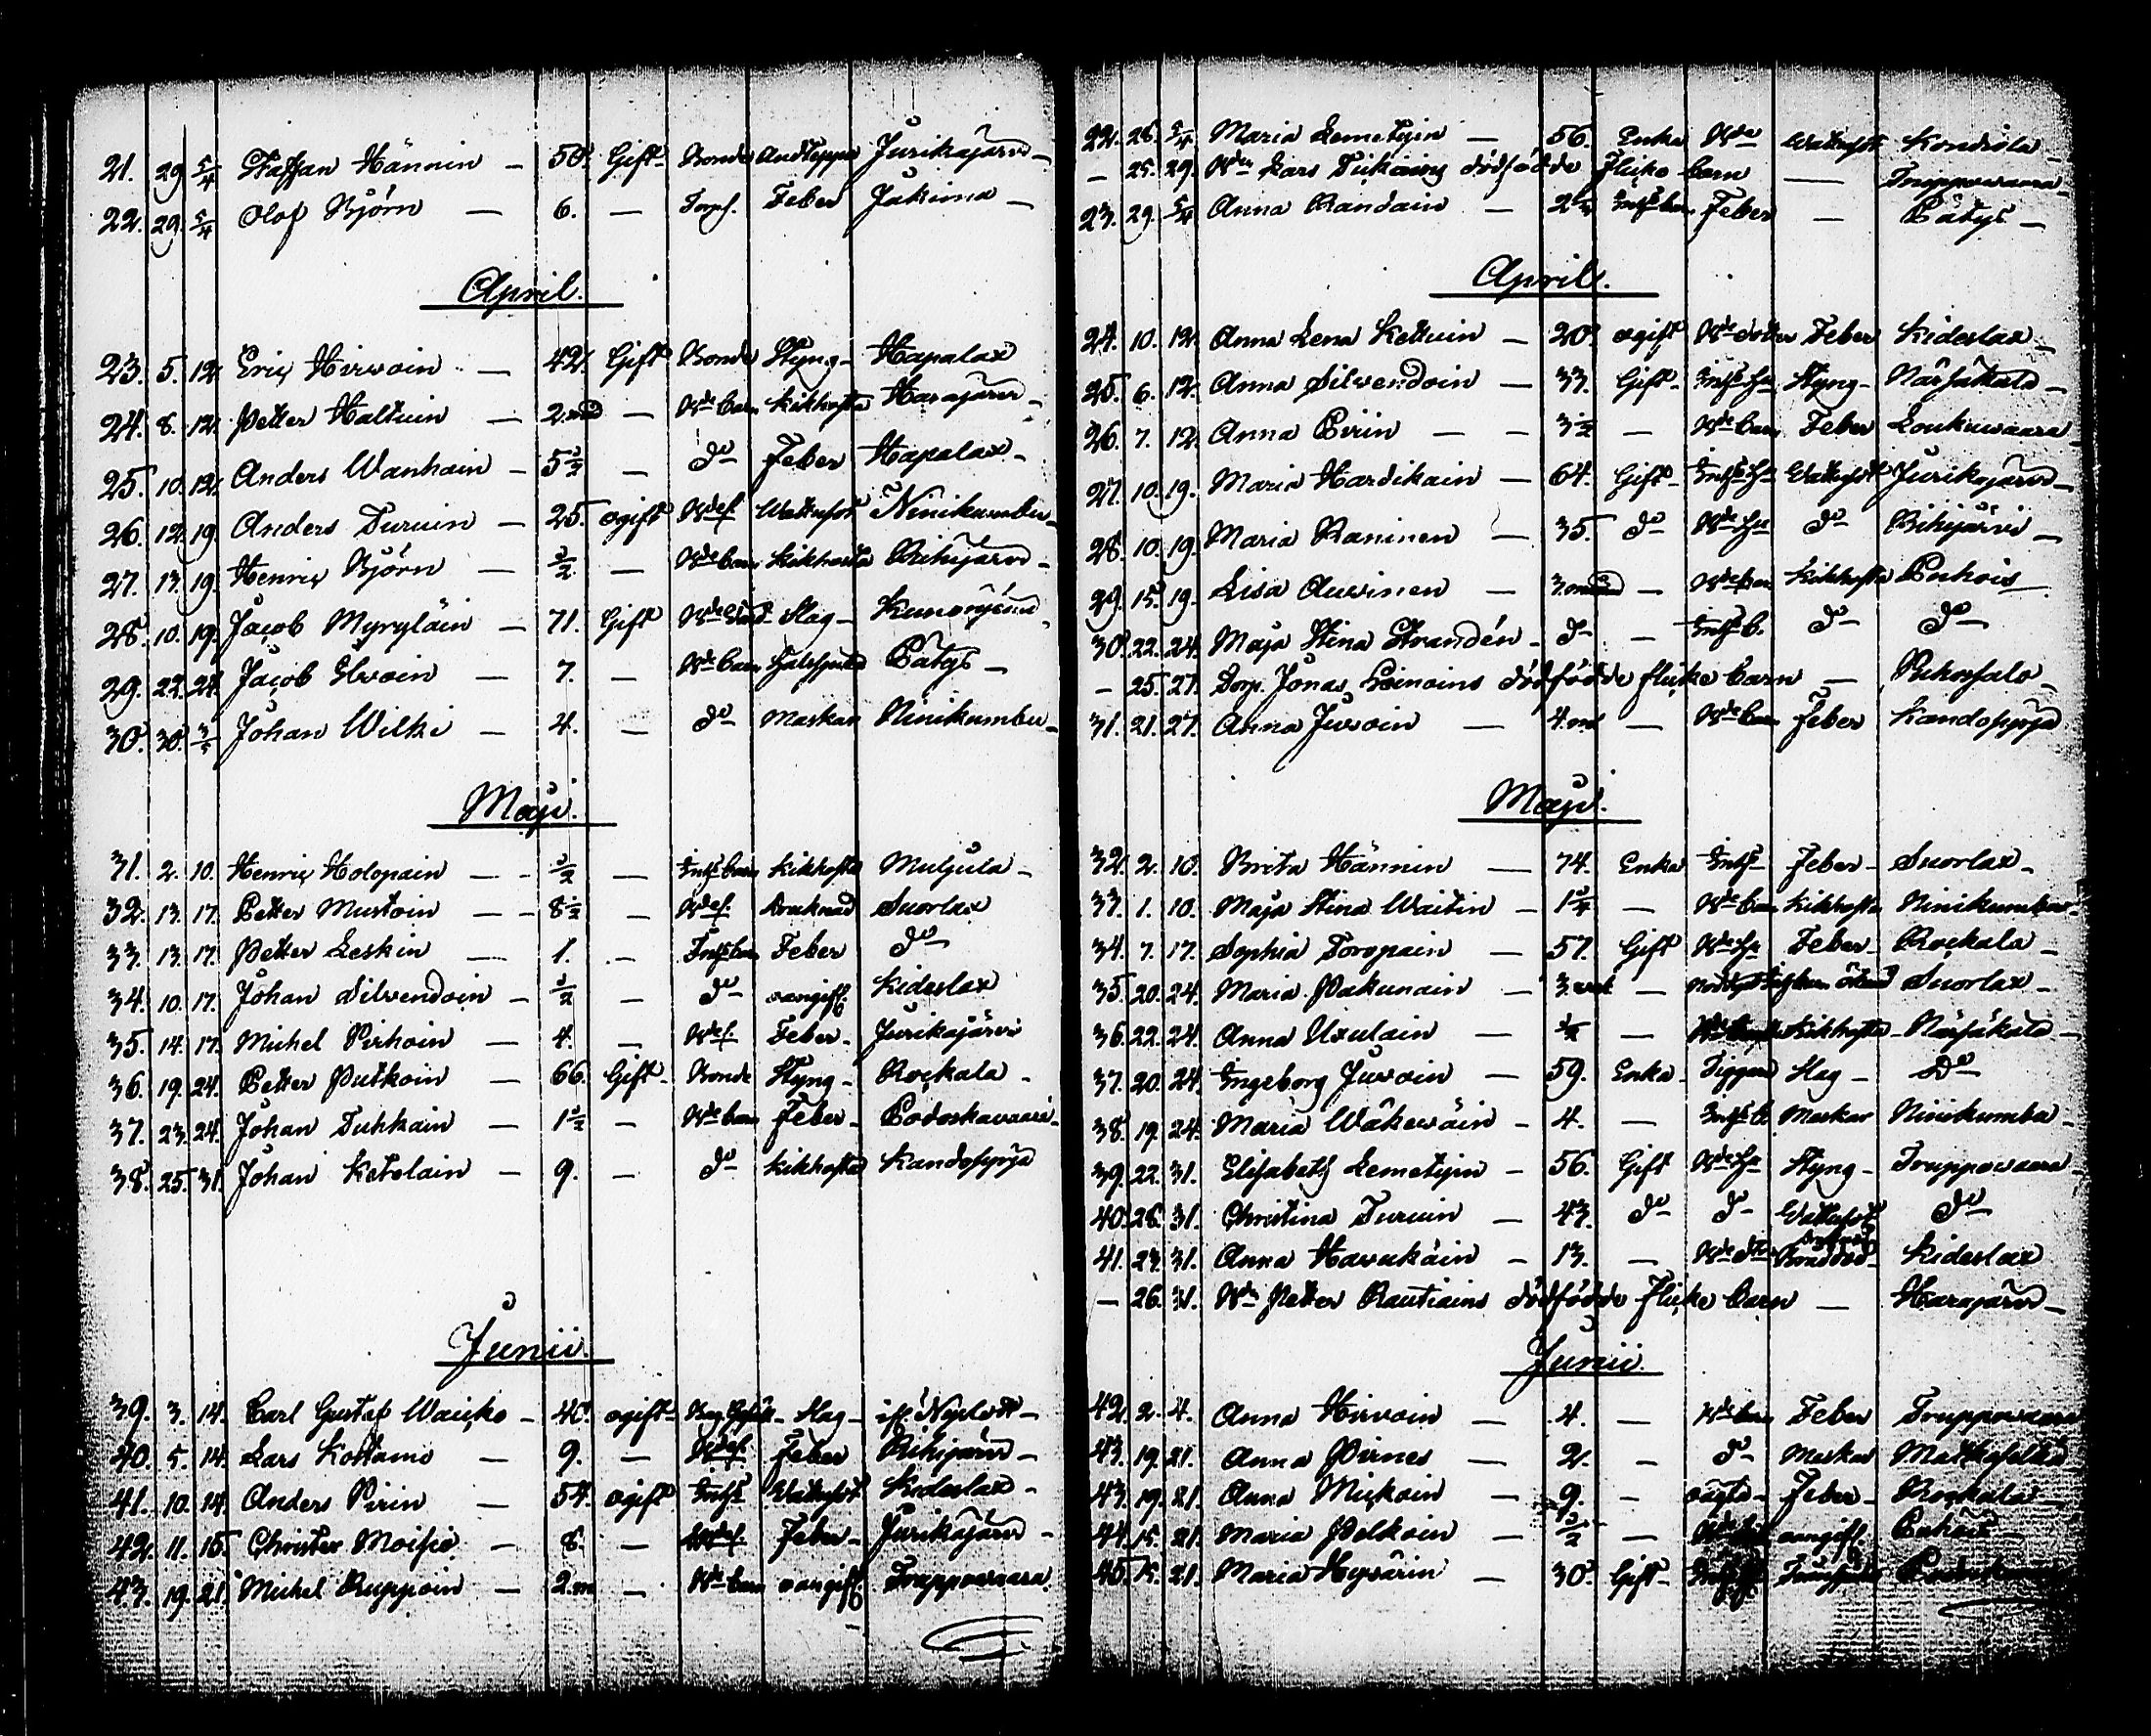 21. 29 5/4 Staffan Hännin — 50. Gift Bonde Andtäppa Jurikajärvi
22. 29. 5/4 Olof Björn — 6. — Torpf. Feber Jakima —
April.
23. 5. 12. Eric Hirvoin — 42. Gift Bonde Styng Hapalax
24. 8. 12. Petter Haltuin — 2. md — Bde barn Kikhosta Harajärvi
25. 10. 12. Anders Wanhain — 5 1/2 — do Feber Hapalax
26. 12. 19. Anders Turuin — 25. ogift Bdes. Wattusot Niinikumbu
27. 13. 19. Henric Björn — 1/2 — Bde barn Kikhosta Riihijärvi
28. 10. 19. Jacob Myryläin — 71. Gift Slag
29. 22. 24. Jacob Elvoin — 7. — Bde barn Pätys —
30. 30. 3/5 Johan Wilki — 4. — do Maskar Niinikumbu
Maji.
31. 2. 10. Henric Holopain — 1/2 — Inhs barn Kikhosta Muljula
32. 13. 17. Petter Mustoin — 8 1/2 — Bdes. Suorlax
33. 13. 17. Petter Leskin — 1. — Inhs barn Feber do
34. 10. 17. Johan Silvendoin — 1/2 — do oangift. Kideslax
35. 14. 17. Michel Pirhoin — 4. — Bdes. Feber Jurikajärvi
36. 19. 24. Petter Putkoin — 66. Gift Bonde Styng Rockala
37. 23. 24. Johan Tuhkain — 1 1/2 — Bde barn Feber Podoskavaara
38. 25. 31. Johan Ketolain — 9. — do Kikhosta Kandospyrjä
Junii.
39. 3. 14. Carl Gustaf — ogift Slag if. Nyslott
40. 5. 14. Lars Kottama — 9. — Bdes. Feber Riihijärvi
41. 10. 14. Anders Pirin — 54. ogift Inhs Wattusot Kideslax
42. 11. 15. Christer Moisio — 8. — Bdes. Feber Jurikajärvi
43. 19. 21. Michel Ruppoin — 2. m — Bde barn oangift. Truppovaara
22. 26. 5/4 Maria Lemetyin — 56. Enka Bde Wattusot Kondiola
— 25. 29. Bdn Lars dödfödde flicko barn — Truppovaara
23. 29. 5/4 Anna Randain — Inhs barn Feber — Pätys —
April.
24. 10. 12. Anna Lena Kettuin — 20. ogift Bde dotter Feber Kideslax
25. 6. 12. Anna Silvendoin — 33. Gift Inhs hu Styng Närsäkala
26. 7. 12. Anna Pirin — 3 1/2 — Bde barn Feber Loukuvaara
27. 10. 19. Maria Hardikain — 64. Gift Inhs hu Wattusot Jurikajärvi
28. 10. 19. Maria Raninen — 35. do Bde hu do Riihijärvi
29. 15. 19. Lisa Auvinen — — Bde barn Kikhosta Puhois
30. 22. 24. Maja Stina Strandén — do — Inhs b. do do
— 25. 27. Torp. Jonas Loinoins dödfödde flicke barn —
31. 21. 27. Anna Juvoin — 4. md — Bde barn Feber Kandospyrjä
Maji.
32. 2. 10. Brita Hännin — 74. Enka Inhs Feber Suorlax
33. 1. 10. Maja Stina Waitin — 1 3/4 — Bde barn Kikhosta Niinikumbu
34. 7. 17. Sophia Toropain — 57. Gift Bde hu Feber Rockala
35. 20. 24. Maria Pakunain — 3. veck — Suorlax
36. 22. 24. Anna Uxulain — 1/2 — Kikhosta Närsäkala
37. 20. 24. Ingeborg Juvoin — 59. Enka Tiggare Slag do
38. 19. 24. Maria Wäkeväin — 4. — Inhs b. Maskar Niinikumba
39. 22. 31. Elisabeth Lemetyin — 56. Gift Bde hu Styng Truppovaara
40. 28. 31. Christina Turuin — 43. do do Wattusot do
41. 23. 31. Anna Havukain — 13. — Kideslax
— 26. 31. Bdn Petter Rautiains dödfödde flicke barn — Harajärvi
Junii.
42. 2. 4. Anna Hirvoin — 4. — Bde barn Feber Truppovaara
43. 19. 21. Anna Pirnes — 2. — do Maskar
43. 19. 21. Anna Mickoin — 9. — oägta Feber Rockala
44. 15. 21. Maria Pelkoin — 1/2 — oangift. Puhois
45. 15. 21. Maria Hyvärin — 30. Gift